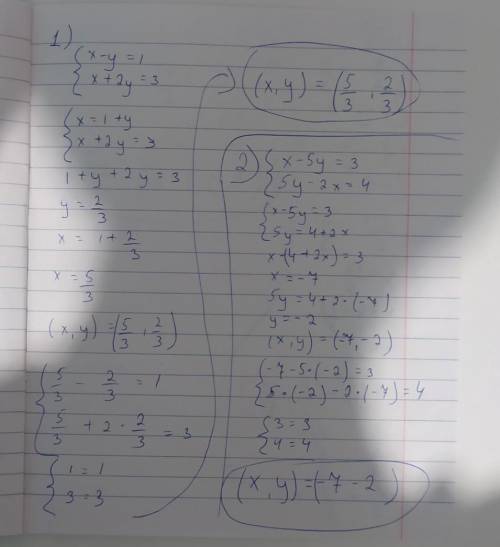 1)
{ x-y=1
x+2y=3
{ x=1+y
x+2y=3
1+y+2y=3
y=2/3
x=1+2/3
x=5/3
(x,y)=(5/3,2/3)
{ 5/3-2/3=1
5/3+2·2/3=3
{ 1=1
3=3
(x,y)=(5/3,2/3)
2) { x-5y=3
5y-2x=4
{ x-5y=3
5y=4+2x
x-(4+2x)=3
x=-7
5y=4+2·(-7)
y=-2
(x,y)=(-7,-2)
{ -7-5·(-2)=3
5·(-2)-2·(-7)=4
{ 3=3
4=4
(x,y)=(-7-2)